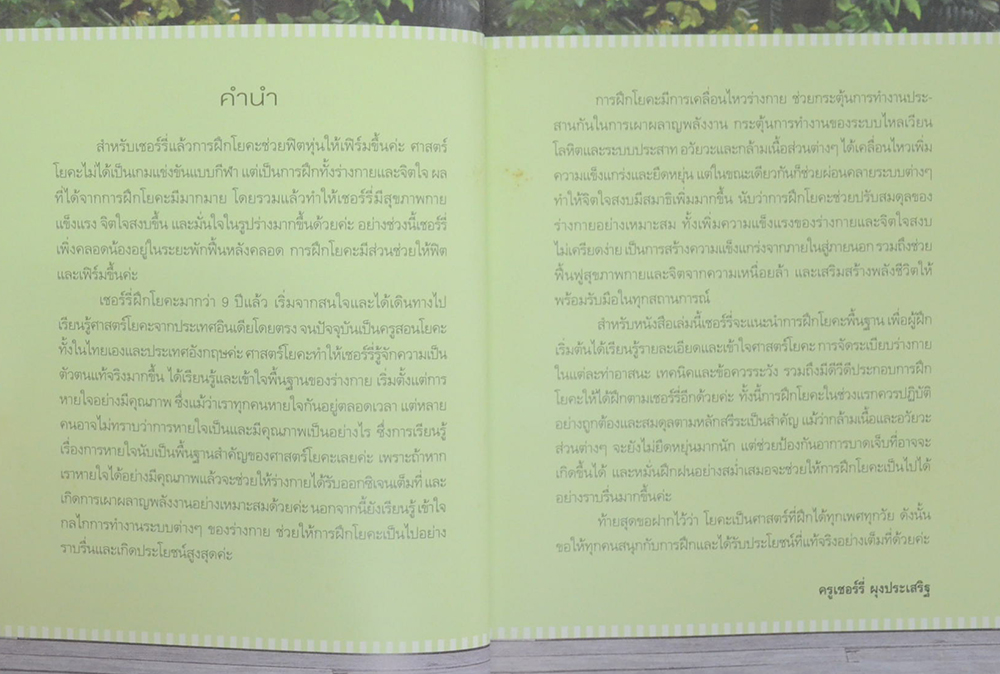 คำนำ
สำหรับเชอร์รี่แล้วการฝึกโยคะช่วยฟิตหุ่นให้เฟิร์มขึ้นค่ะ ศาสตร์
โยคะไม่ได้เป็นเกมแข่งขันแบบกีฬา แต่เป็นการฝึกทั้งร่างกายและจิตใจ ผล
ที่ได้จากการฝึกโยคะมีมากมาย โดยรวมแล้วทำให้เชอร์รี่มีสุขภาพกาย
แข็งแรง จิตใจสงบขึ้น และมั่นใจในรูปร่างมากขึ้นด้วยค่ะ อย่างช่วงนี้เชอร์รี่
เพิ่งคลอดน้องอยู่ในระยะพักฟื้นหลังคลอด การฝึกโยคะมีส่วนช่วยให้ฟิต
และเฟิร์มขึ้นค่ะ
เชอร์รี่ฝึกโยคะมากว่า 9 ปีแล้ว เริ่มจากสนใจและได้เดินทางไป
เรียนรู้ศาสตร์โยคะจากประเทศอินเดียโดยตรง จนปัจจุบันเป็นครูสอนโยคะ
ทั้งในไทยเองและประเทศอังกฤษค่ะ ศาสตร์โยคะทำให้เชอร์รี่รู้จักความเป็น
ตัวตนแท้จริงมากขึ้น ได้เรียนรู้และเข้าใจพื้นฐานของร่างกาย เริ่มตั้งแต่การ
หายใจอย่างมีคุณภาพ ซึ่งแม้ว่าเราทุกคนหายใจกันอยู่ตลอดเวลา แต่หลาย
คนอาจไม่ทราบว่าการหายใจเป็นและมีคุณภาพเป็นอย่างไร ซึ่งการเรียนรู้
เรื่องการหายใจนับเป็นพื้นฐานสำคัญของศาสตร์โยคะเลยค่ะ เพราะถ้าหาก
เราหายใจได้อย่างมีคุณภาพแล้วจะช่วยให้ร่างกายได้รับออกซิเจนเต็มที่ และ
เกิดการเผาผลาญพลังงานอย่างเหมาะสมด้วยค่ะ นอกจากนี้ยังเรียนรู้ เข้าใจ
กลไกการทำงานระบบต่างๆ ของร่างกาย ช่วยให้การฝึกโยคะเป็นไปอย่าง
ราบรื่นและเกิดประโยชน์สูงสุดค่ะ
การฝึกโยคะมีการเคลื่อนไหวร่างกาย ช่วยกระตุ้นการทำงานประ-
สานกันในการเผาผลาญพลังงาน กระตุ้นการทำงานของระบบไหลเวียน
โลหิตและระบบประสาท อวัยวะและกล้ามเนื้อส่วนต่างๆ ได้เคลื่อนไหวเพิ่ม
ความแข็งแกร่งและยืดหยุ่น แต่ในขณะเดียวกันก็ช่วยผ่อนคลายระบบต่างๆ
ทำให้จิตใจสงบมีสมาธิเพิ่มมากขึ้น นับว่าการฝึกโยคะช่วยปรับสมดุลของ
ร่างกายอย่างเหมาะสม ทั้งเพิ่มความแข็งแรงของร่างกายและจิตใจสงบ
ไม่เครียดง่าย เป็นการสร้างความแข็งแกร่งจากภายในสู่ภายนอก รวมถึงช่วย
ฟื้นฟูสุขภาพกายและจิตจากความเหนื่อยล้า และเสริมสร้างพลังชีวิตให้
พร้อมรับมือในทุกสถานการณ์
สำหรับหนังสือเล่มนี้เชอร์รี่จะแนะนำการฝึกโยคะพื้นฐาน เพื่อผู้ฝึก
เริ่มต้นได้เรียนรู้รายละเอียดและเข้าใจศาสตร์โยคะ การจัดระเบียบร่างกาย
ในแต่ละท่าอาสนะ เทคนิคและข้อควรระวัง รวมถึงมีดีวีดีประกอบการฝึก
โยคะให้ได้ฝึกตามเชอร์รี่อีกด้วยค่ะ ทั้งนี้การฝึกโยคะในช่วงแรกควรปฏิบัติ
อย่างถูกต้องและสมดุลตามหลักสรีระเป็นสำคัญ แม้ว่ากล้ามเนื้อและอวัยวะ
ส่วนต่างๆ จะยังไม่ยืดหยุ่นมากนัก แต่ช่วยป้องกันอาการบาดเจ็บที่อาจจะ
เกิดขึ้นได้ และหมั่นฝึกฝนอย่างสม่ำเสมอจะช่วยให้การฝึกโยคะเป็นไปได้
อย่างราบรื่นมากขึ้นค่ะ
ท้ายสุดขอฝากไว้ว่า โยคะเป็นศาสตร์ที่ฝึกได้ทุกเพศทุกวัย ดังนั้น
ขอให้ทุกคนสนุกกับการฝึกและได้รับประโยชน์ที่แท้จริงอย่างเต็มที่ด้วยค่ะ
ครูเชอร์รี่ ผุงประเสริฐ